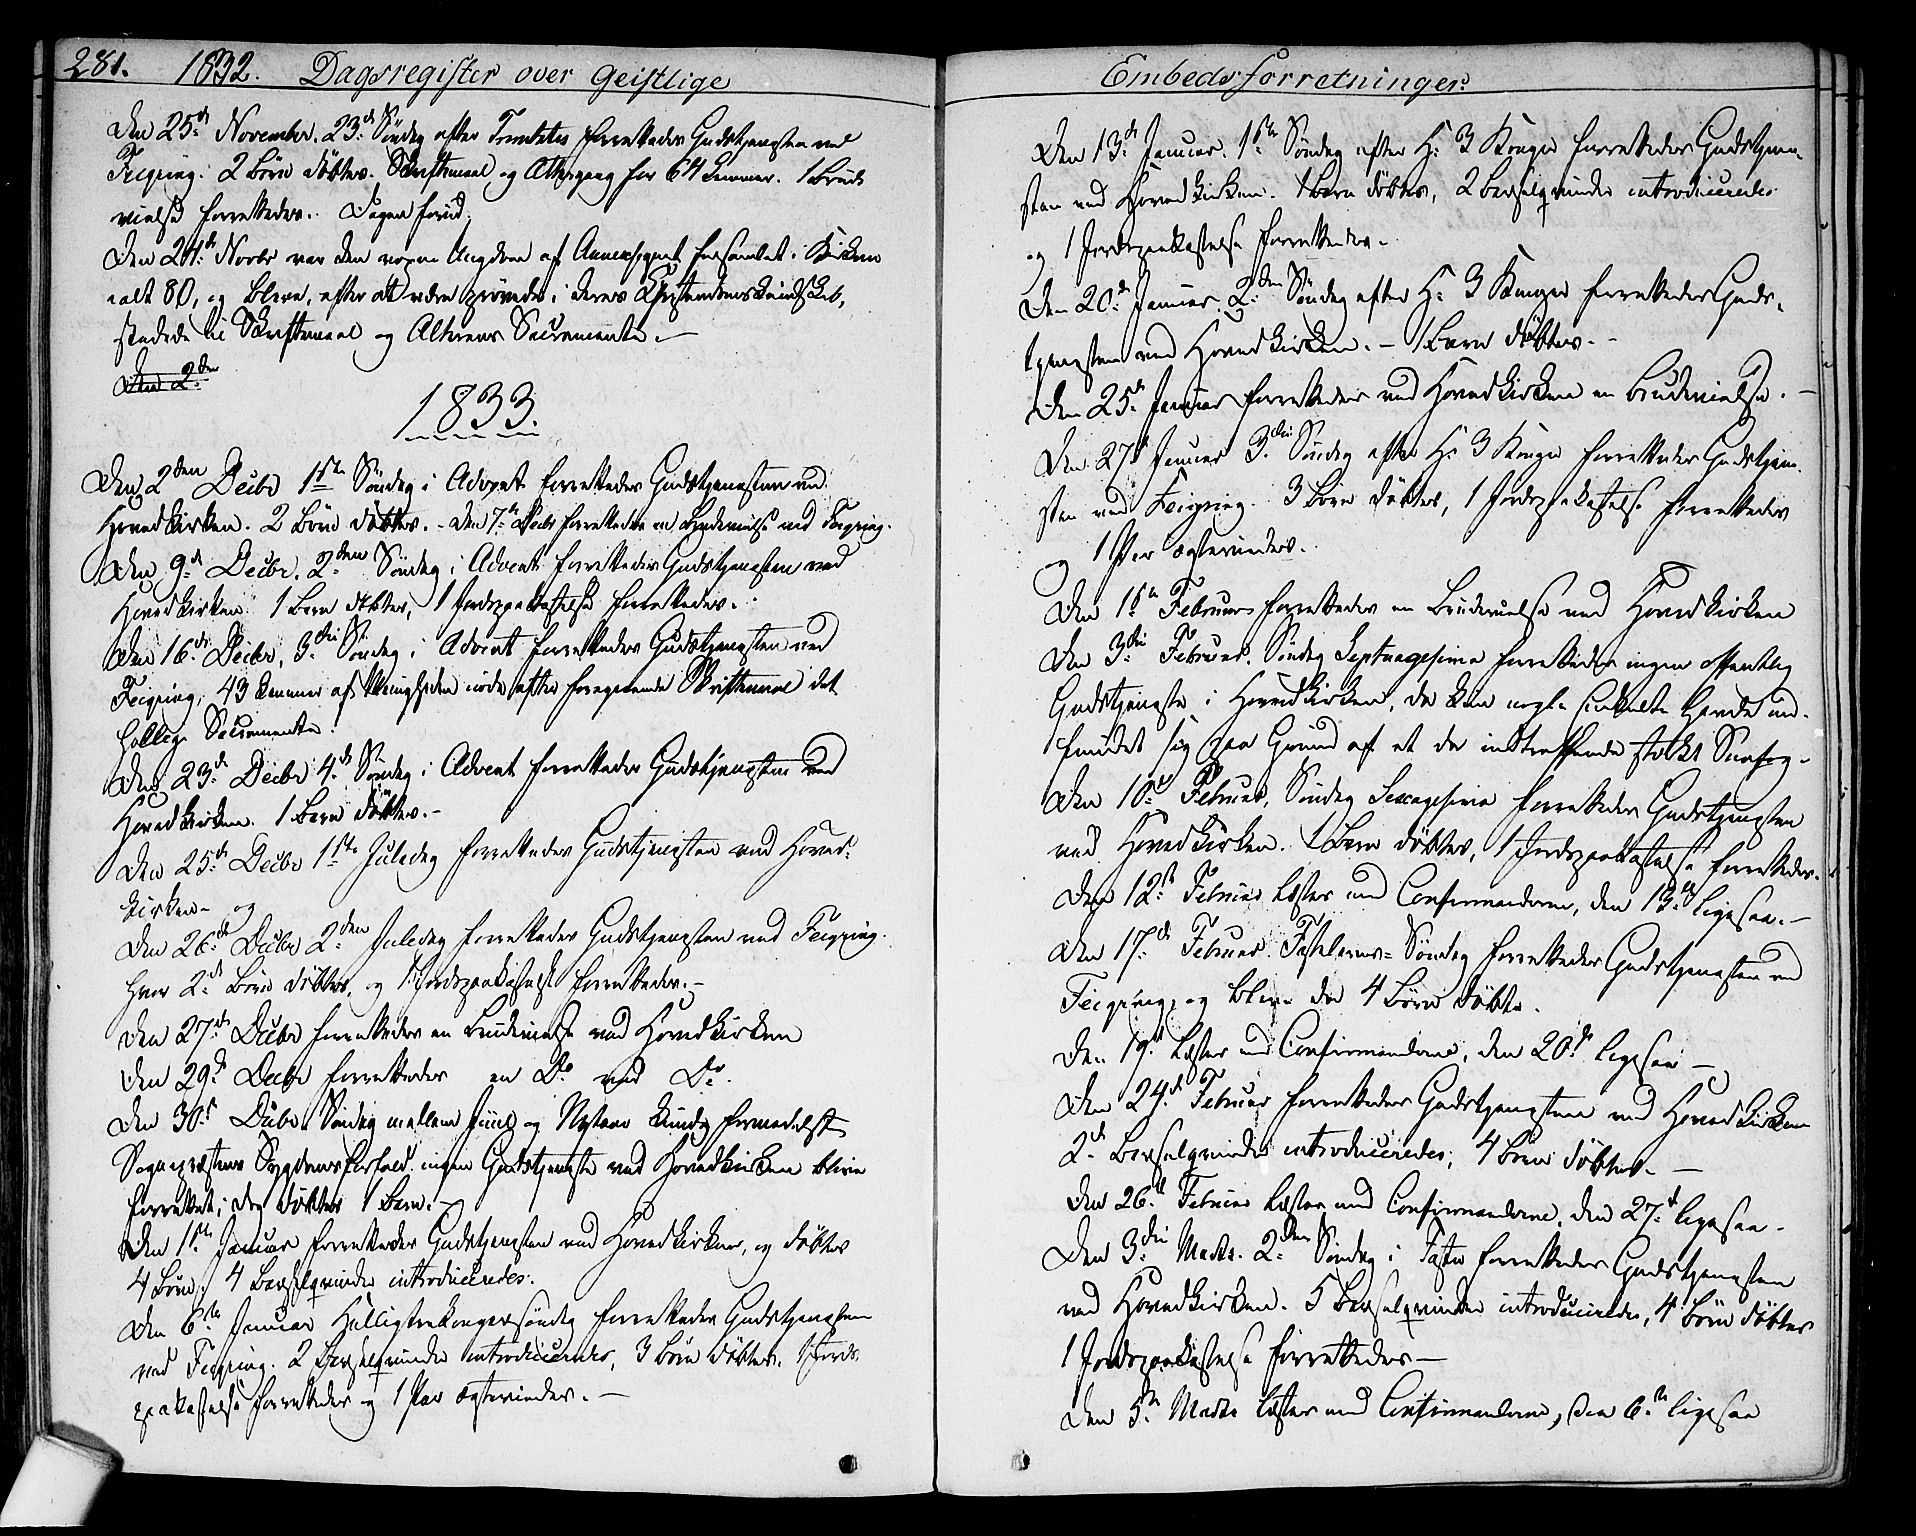 281. 1832. Dagsregister over Geistlige
Den 25de November. 23de Søndag efter Trinitatis forrettedes Gudstjenesten ved
Feiring. 2 Børn døbtes. Skriftemaal og Altergang for 64 Commer. 1 Brude
vielse forrettedes. Dagen forud
Den 24de Novbr var den nogen Ungdom af Annexsognet forsamlet i Kirken
ialt 80, og bleve, efter at være prøvede i deres Christendomskundskab,
stedede til Skriftemaal og Alterens Sacramente. —
Den 2den
1833.
Den 2den Decbr 1ste Søndag i Advent forrettedes Gudstjenesten ved
Hovedkirken. 2 Børn døbtes. – Den 7de Decbr forrettedes en Brudevielse ved Feiring.
Den 9de Decbr. 2den Søndag i Advent forrettedes Gudstjenesten ved
Hovedkirken 1 Barn døbtes, 1 Jordspaakastelse forrettedes.
Den 16de Decbr, 3die Søndag i Advent forrettedes Gudstjenesten ved
Feiring, 43 Commer af Menigheden nøde efter foregaaende Skriftemaal det
hellige Sacramente.
Den 23de Decbr 4de Søndag i Advent forrettedes Gudstjenesten ved
Hovedkirken. 1 Barn døbtes. –
Den 25de Decbr 1ste Juledag forrettedes Gudstjenesten ved Hoved-
kirken – og
Den 26de Decbr 2den Juledag forrettedes Gudstjenesten ved Feiring.
hvor 2de Børn døbtes, og 1 Jordspaakastelse forrettedes. –
Den 27de Decbr forrettedes en Brudevielse ved Hovedkirken
Den 29de Decbr forrettedes en Do ved Do.
Den 30te Decbr Søndag mellem Juul og Nytaar kunde formedelst
Sognepræstens Sygdomsforfald ingen Gudstjeneste ved Hovedkirken blive
forrettet; dog døbtes 1 Barn. –
Den 1ste Januar forrettedes Gudstjenesten ved Hovedkirken, og døbtes
4 Børn; 4 Barselqvinder introduceredes.
Den 6te Januar Helligtrekongersøndag forrettedes Gudstjenesten
ved Feiring. 2 Barselqvinder introduceredes, 3 Børn døbtes. 1 Jords-
paakastelse forrettedes og 1 Par ægteviedes. —
Embedsforretninger.
Den 13de Januar. 1ste Søndag efter H: 3 Konger forrettedes Gudstjene-
sten ved Hovedkirken. 1 Barn døbtes, 2 Barselqvinder introduceredes
og 1 Jordspaakastelse forrettedes. –
Den 20de Januar. 2den Søndag efter H: 3 Konger forrettedes Guds-
tjenesten ved Hovedkirken. – 1 Barn døbtes. –
Den 25de Januar forrettedes ved Hovedkirken en Brudevielse. —
Den 27de Januar 3die Søndag efter H: 3 Konger forrettedes Gudstjene-
sten ved Feiring. 3 Børn døbtes, 1 Jordspaakastelse forrettedes
og 1 Par ægteviedes.
Den 1ste Februar forrettedes en Brudevielse ved Hovedkirken
Den 3die Februar. Søndag Septuagesima forrettedes ingen offentlig
Gudstjeneste i Hovedkirken, da kun nogle enkelte havde ind-
fundet sig paa Grund af et da indtreffende stærkt Snefog –
Den 10de Februar, Søndag Sexagesima forrettedes Gudstjenesten
ved Hovedkirken. 1 Barn døbtes, 1 Jordspaakastelse forrettedes.
Den 12te Februar læstes med Confirmanderne, den 13de ligesaa. –
Den 17de Februar Fastelavns-Søndag forrettedes Gudstjenesten ved
Feiring, og bleve der 4 Børn døbte.
Den 19de læstes med Confirmanderne, den 20de ligesaa —
Den 24de Februar forrettedes Gudstjenesten ved Hovedkirken
2de Barselqvinder introduceredes, 4 Børn døbtes. —
Den 26de Februar læstes med Confirmanderne, den 27de ligesaa –
Den 3die Marts. 2den Søndag i Faste forrettedes Gudstjenesten
ved Hovedkirken. 5 Barselqvinder introduceredes, 4 Børn døbtes
1 Jordspaakastelse forrettedes —
Den 5te Marts læstes med Confirmanderne, den 6te ligesaa